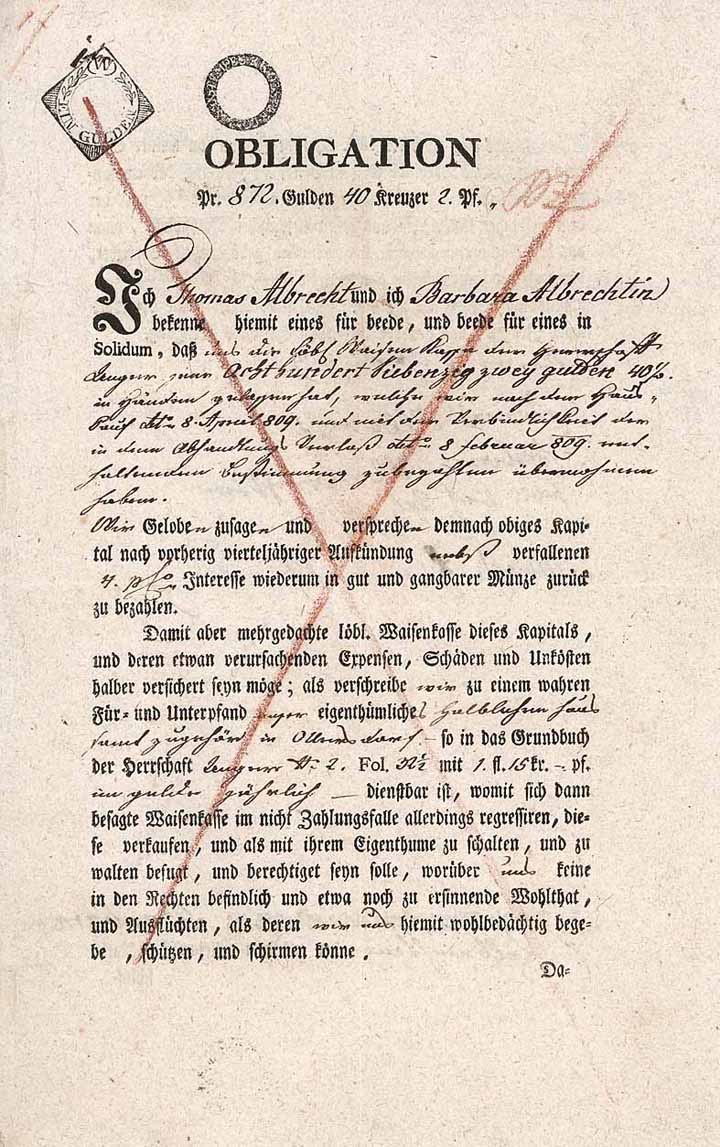 W
EIN GULDEN
OBLIGATION
Pr. 872. Gulden 40 Kreuzer 2. Pf.
Ich Thomas Albrecht und ich Barbara Albrechtin
bekenne hiemit eines für beede, und beede für eines in
Solidum, daß uns die löbl Waisen Kasse der Herrschaft
Achthundert siebenzig zwey gulden 40
in Händen gelassen hat, welche wir nach dem Haus-
kauf dto 8. April 809. und mit der Verbindlichkeit der
in dem Abhandlungs Verlaß dto 8 februar 809. ent-
haltenen Bestimmung zubezahlen übernohmen
haben.
Wir Geloben zusagen und versprechen demnach obiges Kapi-
tal nach vorherig vierteljähriger Aufkündung nebst verfallenen
4. Interesse wiederum in gut und gangbarer Münze zurück
zu bezahlen.
Damit aber mehrgedachte löbl. Waisenkasse dieses Kapitals,
und deren etwan verursachenden Expensen, Schäden und Unkösten
halber versichert seyn möge; als verschreibe wir zu einem wahren
Für- und Unterpfand unser eigenthümliches Halblehen haus
samt zugehör in Ollersdorf - so in das Grundbuch
der Herrschaft Fol. mit 1. fl. 15 kr. - pf.
jährlich — dienstbar ist, womit sich dann
besagte Waisenkasse im nicht Zahlungsfalle allerdings regressiren, die-
se verkaufen, und als mit ihrem Eigenthume zu schalten, und zu
walten befugt, und berechtiget seyn solle, worüber uns keine
in den Rechten befindlich und etwa noch zu ersinnende Wohlthat,
und Ausflüchten, als deren wir uns hiemit wohlbedächtig bege-
be , schützen, und schirmen könne.
Da-